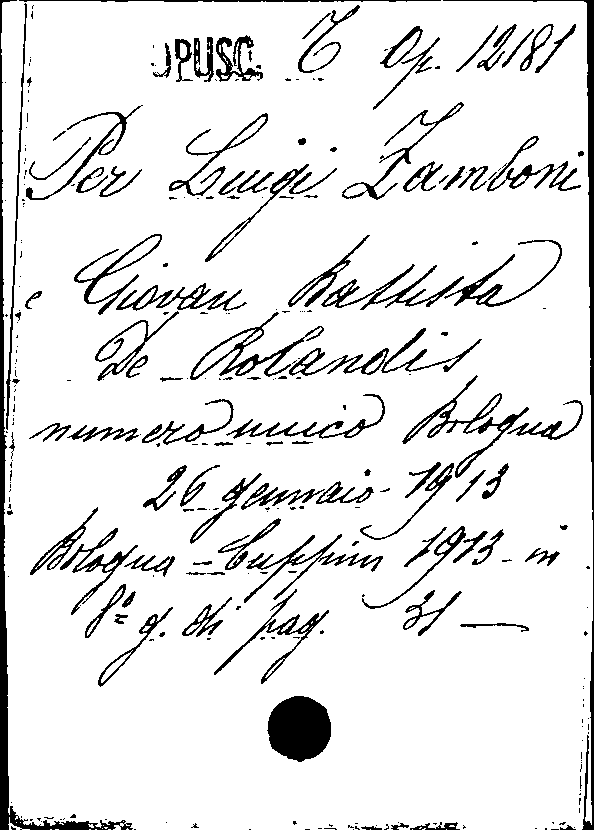 OPUSC. C Op. 12181
Per Luigi Zamboni
e Giovan Battista
De Rolandis
numero unico Bologna
26 gennaio 1913
Bologna - Cuppini 1913 - in
8º g. di pag. 31 —